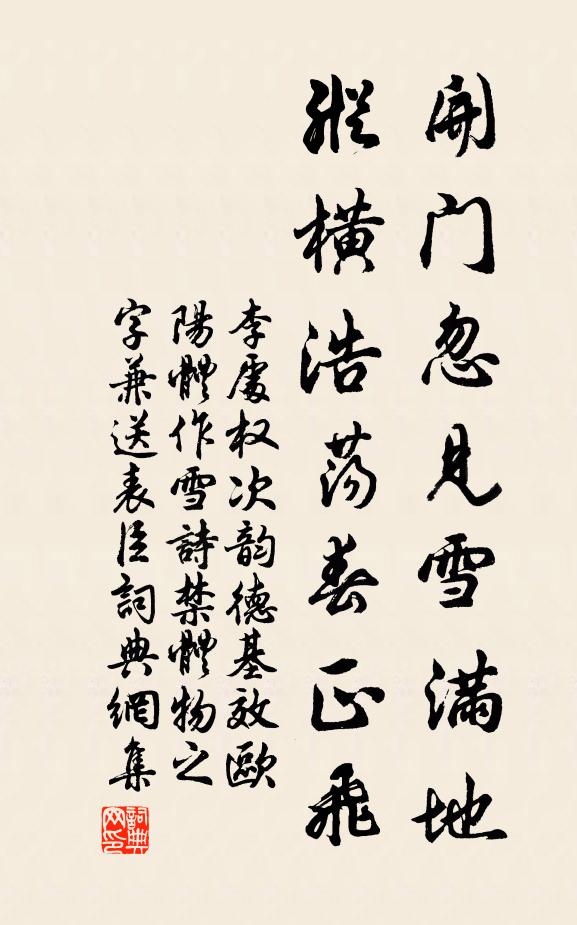 開门忽見雪滿地
縱橫浩蕩春正飛
李處权次韵德基效歐
陽體作雪詩禁體物之
字兼送表臣詞典網集
詞典网印